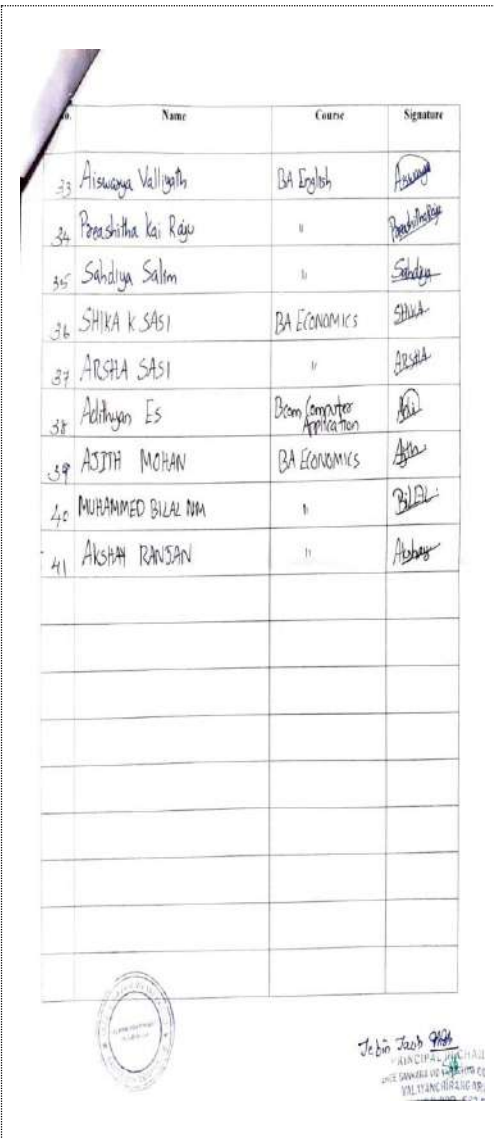 Name Course Signature
33 Aiswarya Valliyath BA English Aiswarya
34 Kai Raju "
35 Sahdiya Salim " Sahdiya
36 SHIKA K SASI BA ECONOMICS SHIKA
37 ARSHA SASI " ARSHA
38 Adithyan Es Bcom Computer Application Adi
39 AJITH MOHAN BA ECONOMICS Ajith
40 MUHAMMED BILAL NM " BILAL
41 AKSHAY RANJAN " Akshay
Jebin
PRINCIPAL